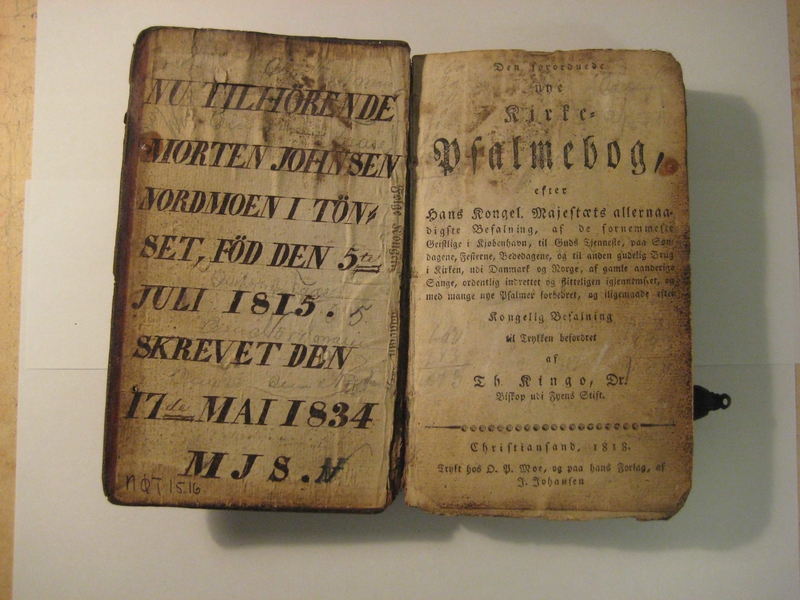 NU TILHÖRENDE
MORTEN JOHNSEN
NORDMOEN I TÖN=
SET, FÖD DEN 5te
JULI 1815.
SKREVET DEN
17de MAI 1834
M J S . N
NØT 1516
Den forordnede
nye
Kirke-
Psalmebog,
efter
Hans Kongel. Majestæts allernaa-
digste Befalning, af de fornemmeste
Geistlige i Kjøbenhavn, til Guds Tjeneste, paa Søn-
dagene, Festerne, Bededagene, og til anden gudelig Brug
i Kirken, udi Danmark og Norge, af gamle aanderige
Sange, ordentlig indrettet og flitteligen igjennemseet, og
med mange nye Psalmer forbedret, og iligemaade efter
Kongelig Befalning
til Trykken befordret
af
Th Kingo, Dr.
Biskop udi Fyens Stift.
Christiansand, 1818.
Trykt hos O. P. Moe, og paa hans Forlag, af
J. Johansen